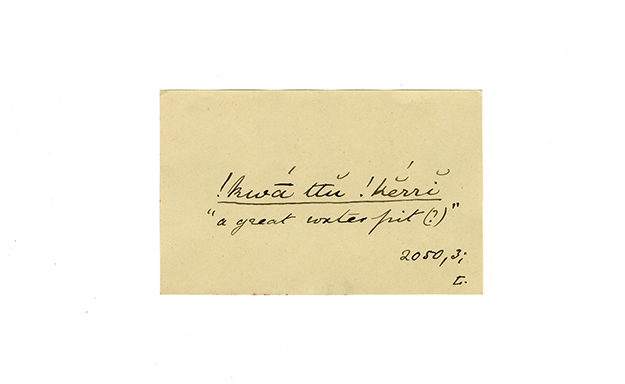 !kwā́ ttŭ !kĕ́rrĭ
"a great water pit (?)"
2050,3;
L.